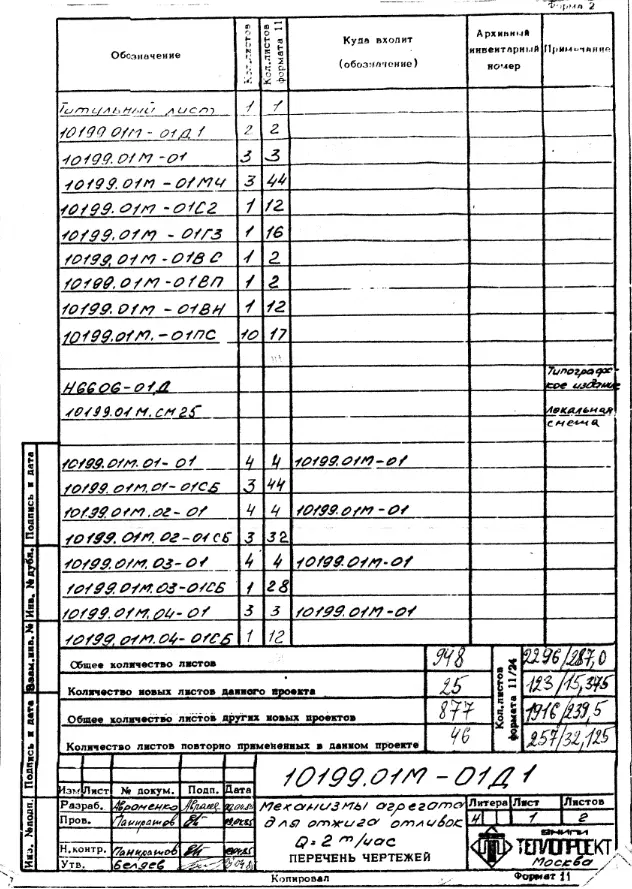 Форма 2
Обозначение Кол.листов Кол.листов формата 11 Куда входит (обозначение) Архивный инвентарный номер Примечание
Титульный лист 1 1
10199.01М - 01Д1 2 2
10199.01М - 01 3 3
10199.01М - 01МЧ 3 44
10199.01М - 01С2 1 12
10199.01М - 01Г3 1 16
10199.01М - 01ВС 1 2
10199.01М - 01ВП 1 2
10199.01М - 01ВН 1 12
10199.01М. - 01ПС 10 17
Н6606-01Д Типографское издание
10199.01М.СМ25 Локальная смета
10199.01М.01-01 4 4 10199.01М-01
10199.01М.01-01СБ 3 44
10199.01М.02-01 4 4 10199.01М-01
10199.01М.02-01СБ 3 32
10199.01М.03-01 4 4 10199.01М-01
10199.01М.03-01СБ 1 28
10199.01М.04-01 3 3 10199.01М-01
10199.01М.04-01СБ 1 12
Общее количество листов 948 2296/287,0
Количество новых листов данного проекта 25 123/15,375
Общее количество листов других новых проектов 877 1916/239,5
Количество листов повторно примененных в данном проекте 46 257/32,125
Кол.листов формата 11/24
Подпись и дата
Инв. № дубл.
Взам.инв. №
Подпись и дата
Инв. №подл.
10199.01М - 01Д1
Изм Лист № докум. Подп. Дата
Разраб. Авраменко
Пров. Панкратов
Н.контр. Панкратов
Утв. Беляев
Механизмы агрегата
для отжига отливок
Q = 2 т/час
ПЕРЕЧЕНЬ ЧЕРТЕЖЕЙ
Литера Лист Листов
И 1 2
ВНИПИ
ТЕПЛОПРОЕКТ
Москва
Копировал Формат 11